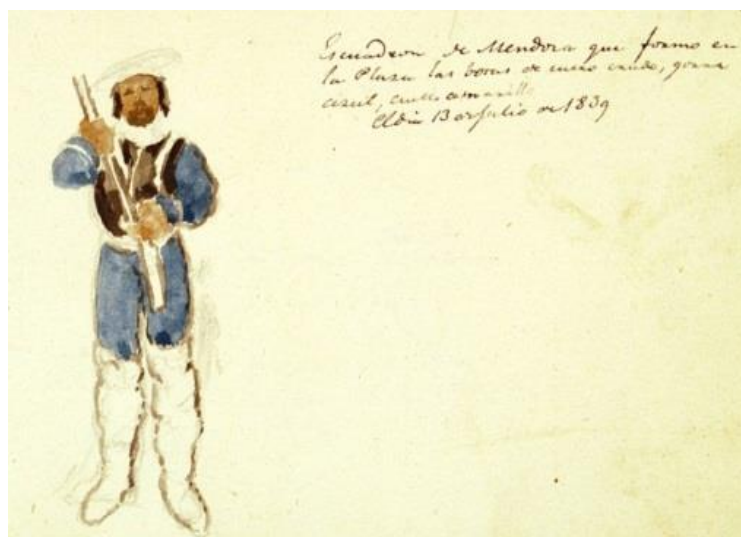 Escuadron de Mendoza que formo en
la Plaza las botas de cuero crudo, gorra
azul, cuello amarillo
El dia 13 de Julio de 1839